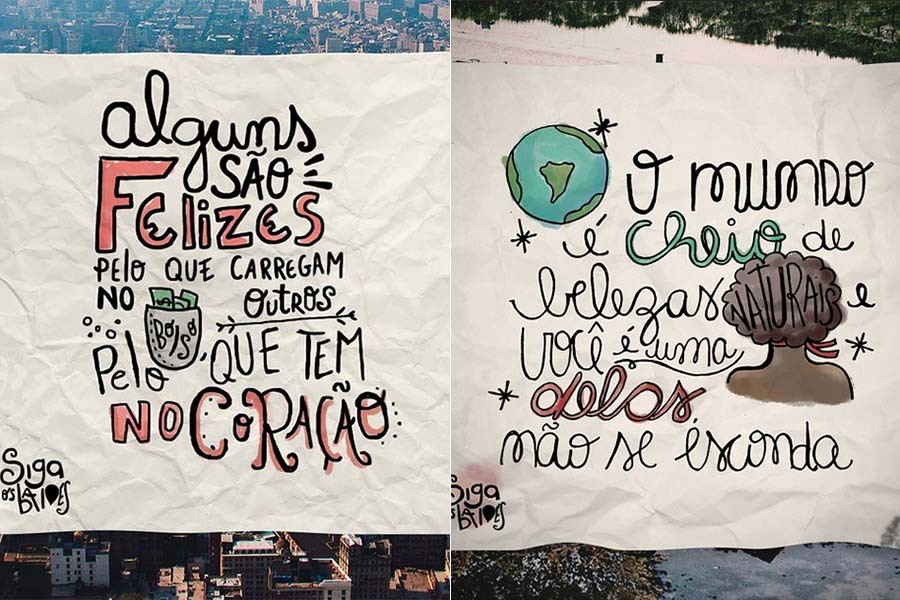 alguns
são
Felizes
pelo que carregam
no Bolso, outros
pelo que tem
no coração
Siga
os balões
O mundo
é cheio de
belezas naturais e
você é uma
delas,
não se esconda
Siga
os balões